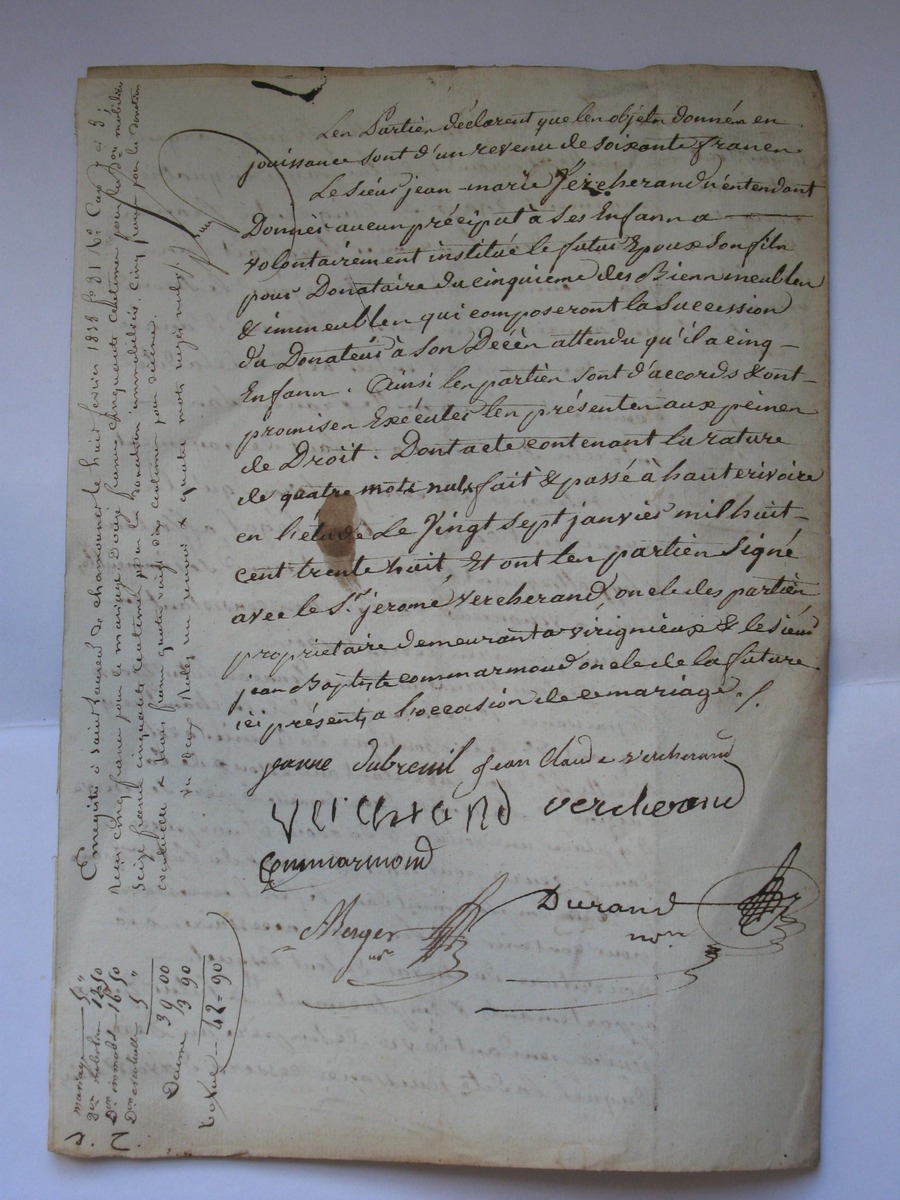 Les Parties déclarent que les objets donnés en
jouissance sont d'un revenu de soixante francs.
Le sieur jean-marie Vercherand n'entendant
Donner aucun préciput à ses Enfans a
volontairement institué le futur Epoux Son fils
pour Donataire du cinquieme des Biens meubles
& immeubles qui composeront la Succession
du Donateur à Son Décès attendu qu'il a cinq
Enfans. Ainsi les parties sont d'accords & ont
promis en Exécuter les présentes aux peines
de Droit. Dont acte contenant la rature
de quatre mots nuls fait & passé à hauterivoire
en l'étude Le Vingt sept janvier mil huit
cent trente huit Et ont les parties Signé
avec le Sr. jeromé Vercherand, oncle des parties
propriétaire demeurant a virignieux & le sieur
jean Baptiste commarmond oncle de la future
ici présents a l'occasion de ce mariage./.
jeanne dubreuil Jean Claude vercherand
Verchrand vercherand
Commarmond
Durand
Merger
nre
nore
Enregistré à Saint Laurent de chamousset le huit février 1838 fo 31 Vo Cases 7 et 8
Reçu cinq francs pour le mariage, Douze francs cinquante centimes pour la Don mobilière
Seize francs cinquante centimes pour la donation immobilière, cinq francs pour la donation
éventuelle & trois francs quatre vingt dix centimes pour décime.
mariage 5 "
Don mobilre 12.50
Don immobre 16.50
Don eventuelle 5 "
39 00
Décime 3 90
Total 42-90